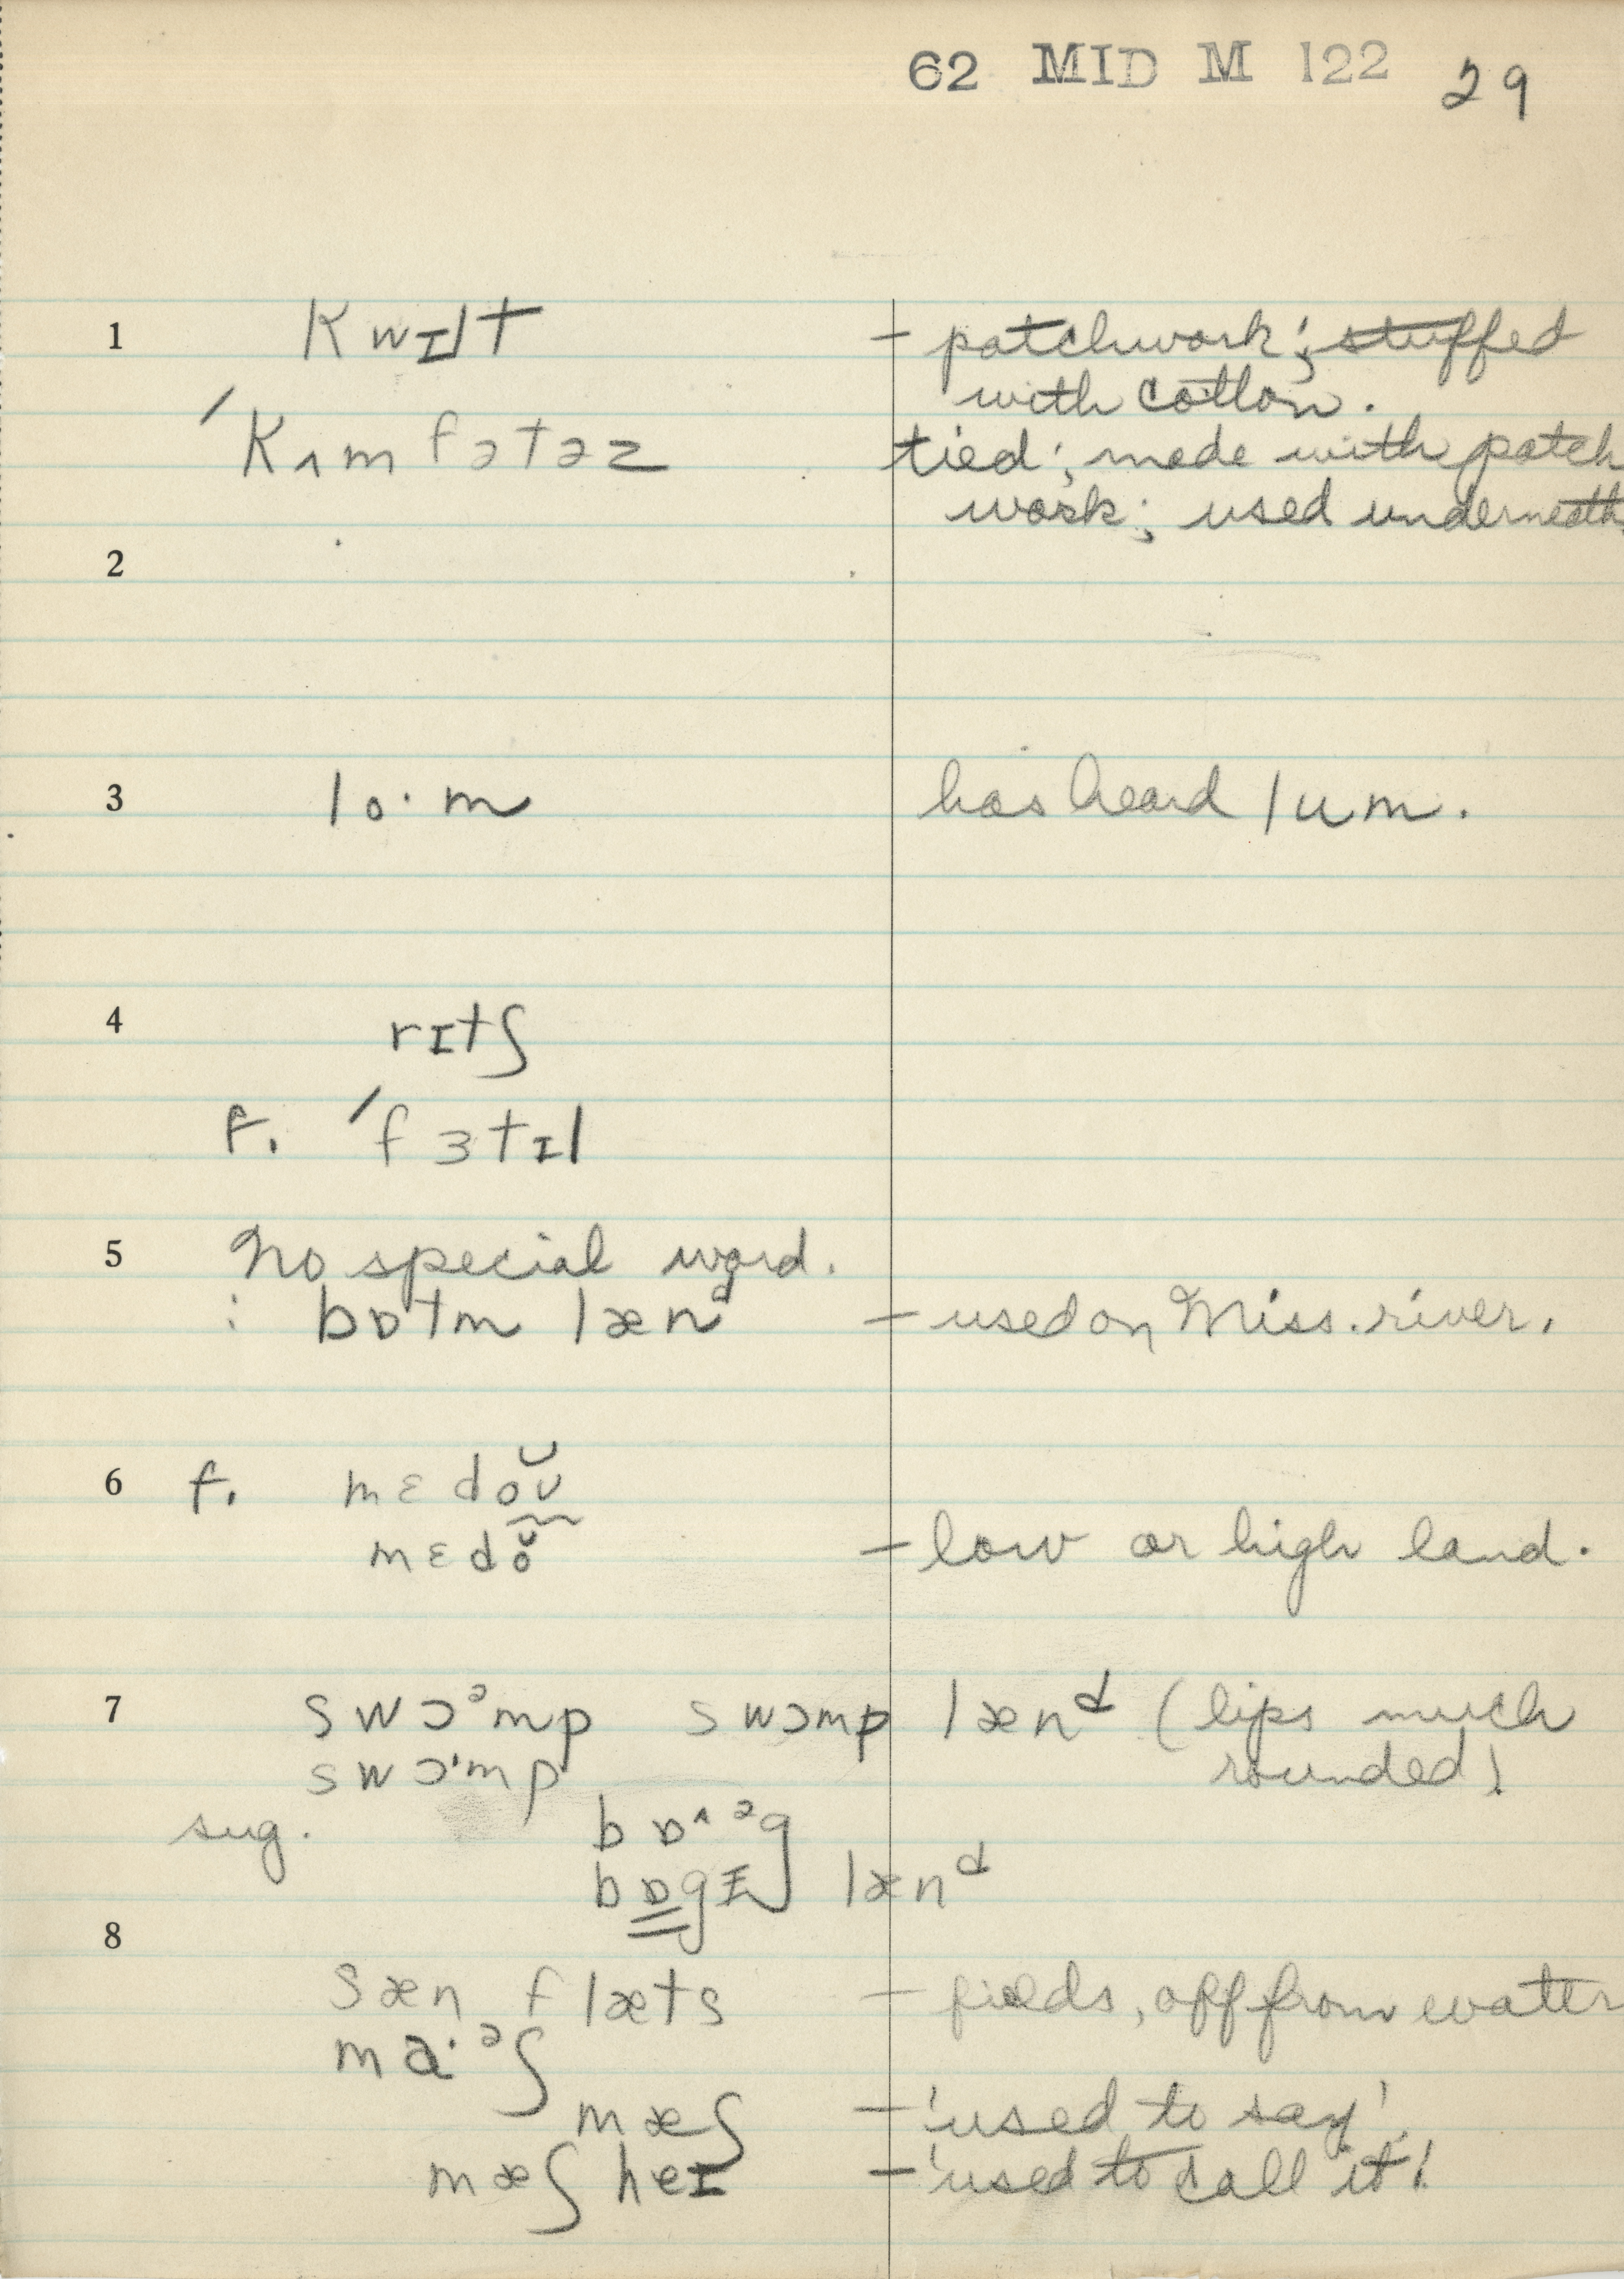 62 MID M 122 29
1 kwɪlt – patchwork; stuffed
with cotton.
ˈkʌmfətəz tied; made with patch
work; used underneath
2
3 lo·m has heard lum.
4 rɪtʃ
f. ˈfɜtɪl
5 No special word.
: bɒtm lænᵈ – used on Miss. river.
6 f. mɛdoʊ̆
mɛdŏ – low or high land.
7 swɔᵊmp swɔmp lænᵈ (lips much
swɔ·mp rounded)
sug. bɒ^ᵊg
bɒgɪ lænᵈ
8
sæn flæts – fields, off from water
ma·ᵊʃ
mæʃ – 'used to say'.
mæʃ heɪ – 'used to call it'.